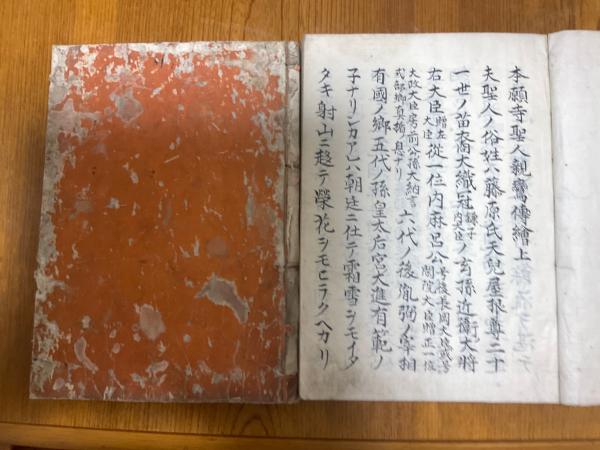 本願寺聖人親鸞傳繪上
夫聖人ノ俗姓ハ藤原氏天兒屋根尊二十
一世ノ苗裔大織冠鎌子内大臣ノ玄孫近衛大將
右大臣贈左大臣從一位内麻呂公号後長岡大臣或号閑院大臣贈正一位
太政大臣房前公孫大納言式部卿真楯息ナリ六代ノ後胤弼ノ宰相
有國ノ卿五代ノ孫皇太后宮大進有範ノ
子ナリシカアレハ朝廷ニ仕テ霜雪ヲモイタ
タキ射山ニ趍テ榮花ヲモヒラクヘカリ